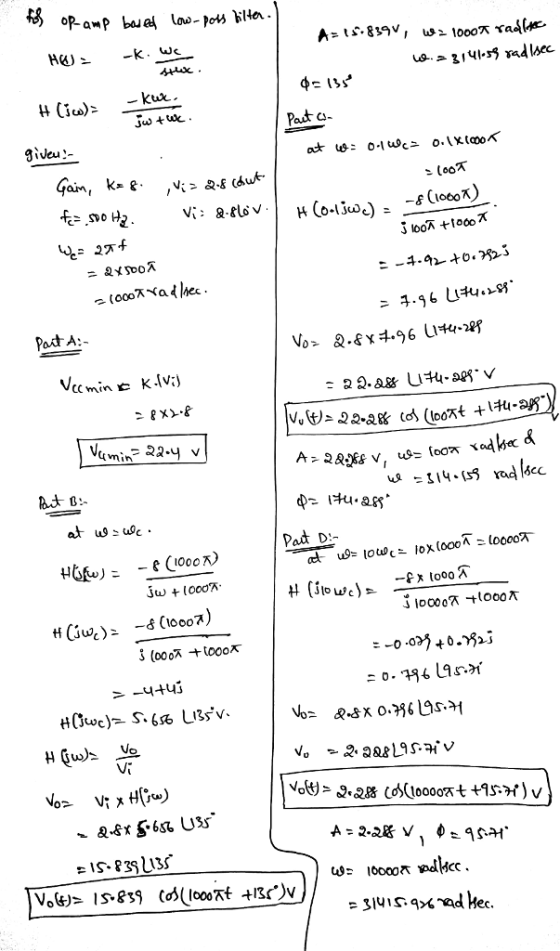 for op-amp based low-pass filter.
H(s) = -K. wc / s+wc.
H(jω) = -Kwc. / jω+wc.
given:-
Gain, K= 8. , Vi = 2.8 cosωt
fc= 500 Hz. Vi = 2.8 V.
Wc= 2πf
= 2×500π
= 1000π rad/sec.
Part A:-
Vccmin = K.(Vi)
= 8×2.8
Vccmin= 22.4 V
Part B:-
at ω=ωc.
H(jω) = -8(1000π) / jω+1000π.
H(jωc) = -8(1000π) / j1000π+1000π
= -4+4j
H(jωc)= 5.656 ∠135° V.
H(jω)= Vo / Vi
Vo= Vi × H(jω)
= 2.8× 5.656 ∠135°
= 15.839∠135°
Vo(t)= 15.839 cos(1000πt +135°)V
A= 15.839V, ω= 1000π rad/sec
ω = 3141.59 rad/sec
φ= 135°
Part C:-
at ω= 0.1ωc= 0.1×1000π
= 100π
H(0.1jωc) = -8(1000π) / j100π+1000π.
= -7.92 +0.792j
= 7.96 ∠174.289°
Vo= 2.8×7.96 ∠174.289
= 22.288 ∠174.289° V
Vo(t)= 22.288 cos(100πt +174.289°)
A= 22.288 V, ω= 100π rad/sec &
ω = 314.159 rad/sec
φ= 174.289°
Part D:-
at ω= 10ωc= 10×1000π = 10000π
H(j10ωc) = -8×1000π / j10000π+1000π
= -0.079+0.792j
= 0.796 ∠95.71°
Vo= 2.8×0.796∠95.71
Vo = 2.228∠95.71°V
Vo(t) = 2.288 cos(10000πt +95.71°)V
A= 2.228 V, φ= 95.71°
ω= 10000π rad/sec.
= 31415.926 rad/sec.